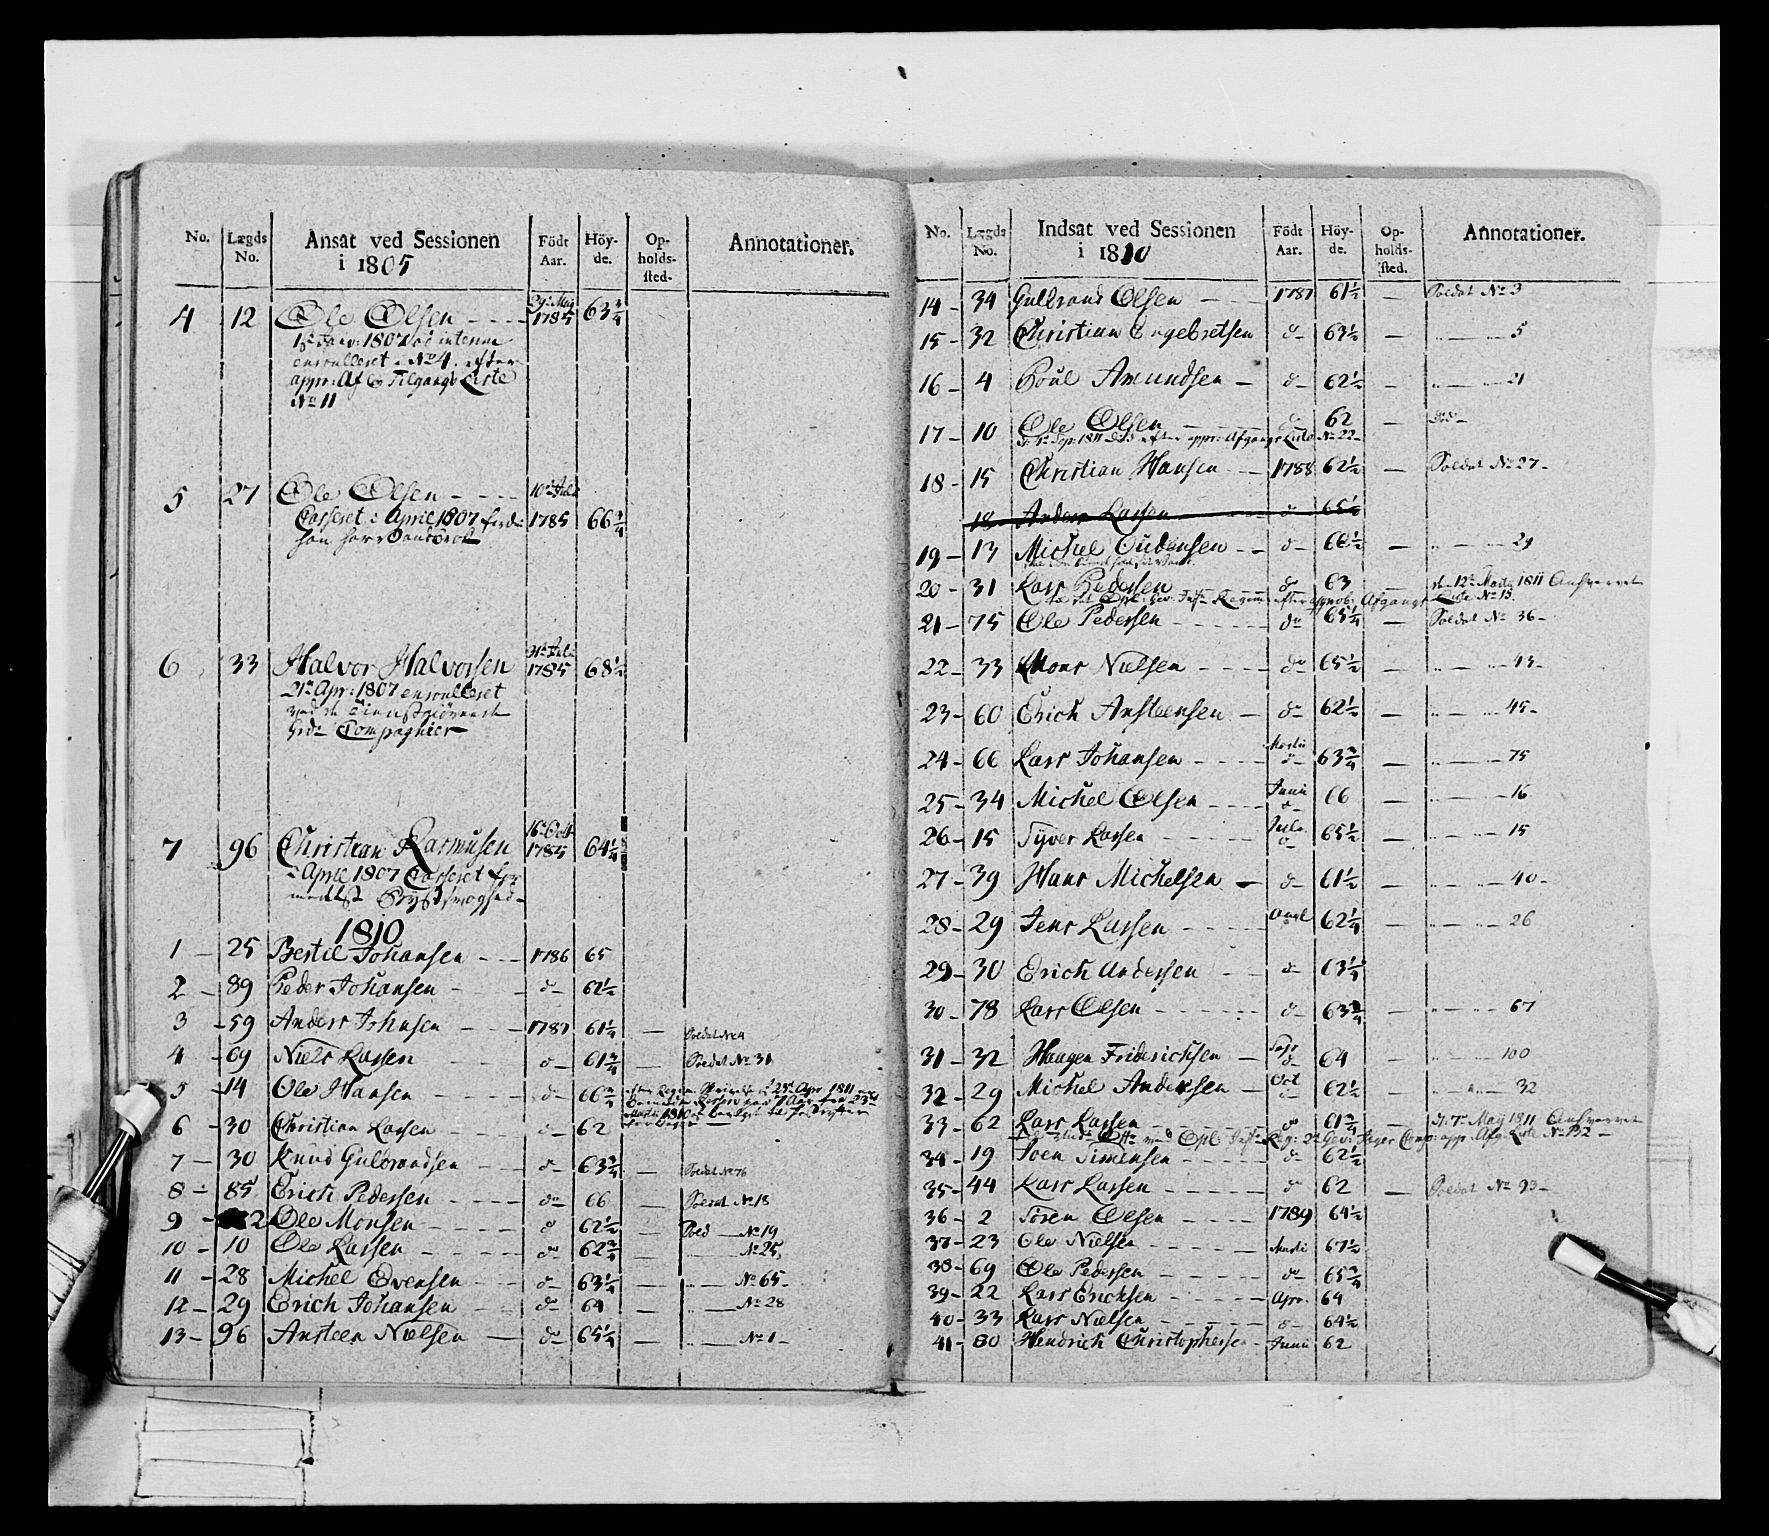 No. Lægds No. Ansat ved Sessionen i 1805 Födt Aar. Höyde. Opholdssted. Annotationer.
4 12 Ole Olsen - - - 29de Maij 1785 63 3/4
1ste Janv: 1807 ad interim
enroulleret No 4. efter
appr: Af og Tilgangs Liste
No 11
5 27 Ole Olsen - - - - 10de Julii
Casseret i April 1807 1785 66 3/4
6 33 Halvor Halvorsen 1785 68 1/2
21de Apr: 1807 enroulleret
Compagnier
7 96 Christian Rasmusen 16de Octb 1785 64 1/4
i April 1807 Casseret for
medelst
1810
1 - 25 Bertil Johansen - - 1786 65
2 - 89 Peder Johansen - - - do 62 1/2
3 - 59 Anders Johnsen - - - 1787 61 1/4 — Soldat No 4
4 - 69 Niels Larsen - - - do 61 3/4 Soldat No 31
5 - 14 Ole Hansen - - - do 66 3/4 25de Apr 1811
6 - 30 Christian Larsen - - do 62
7 - 30 Knud Gulbrandsen - do 63 3/4 — Soldat No 76
8 - 85 Erich Pedersen - - - do 66 — Soldat No 18
9 - 2 Ole Monsen - - - do 62 1/2 — Sold — No 19
10 - 10 Ole Larsen - - - - do 62 3/4 — No 25
11 - 28 Michel Evensen - - do 63 1/4 — " — No 65 -
12 - 29 Erich Johansen - - do 64 — " — No 28
13 - 96 Ansteen Nielsen — do 65 1/4 — " — No 1 -
No. Lægds No. Indsat ved Sessionen i 1810 Födt Aar. Höyde. Opholdssted. Annotationer.
14 - 34 Gulbrand Olsen — 1787 61 1/2 — Soldat No 3
15 - 32 Christian Engebretsen do 63 1/2 — " — " 5
16 - 4 Poul Amundsen — do 62 1/2 — " — " 21
17 - 10 Ole Olsen do 62 — död -
Sep: 1811 död efter appr: Afgangs Liste No 22
18 - 15 Christian Hansen - - 1788 62 1/2 — Soldat No 27 -
18 Anders Larsen do 65 1/2
19 - 13 Michel Gudensen - - do 66 1/2 — " — " 29
20 - 31 Lars Pedersen do 63 — d. 12te Martz 1811 Anhverret
Regim: efter approb: Afgangs Liste No 15
21 - 75 Ole Pedersen - - - - do 65 1/4 — Soldat No 36 -
22 - 33 Mons Nielsen - - - do 65 1/2 — " — " 43 -
23 - 60 Erich Ansteensen — do 62 1/2 — " — " 45 -
24 - 66 Lars Johansen - - - Martii do 63 3/4 — " — " 75
25 - 34 Michel Olsen - - - Junii do 66 — " — 16
26 - 15 Syver Larsen - - - Julii do 65 1/2 — " — " 15
27 - 39 Hans Michelsen — do 61 1/2 — " — " 40 -
28 - 29 Jens Larsen - - - - Aug 62 1/4 — " — " 26
29 - 30 Erich Andersen - - do 63 1/4
30 - 78 Lars Olsen - - - - do 63 3/4 — " — " 67
31 - 32 Haagen Friderichsen — Sepr do 64 — " — 100
32 - 29 Michel Andersen - - Oct do 62 1/2 — " — " 32
33 - 62 Lars Larsen - - - do 61 3/4 — d. 7de Maij 1811 Anhverret
34 - 19 Joen Simensen - - do 62 1/2
35 - 44 Lars Larsen - - - - do 62 — Soldat No 93 -
36 - 2 Sören Olsen - - - - 1789 64 1/2
37 - 23 Ole Nielsen - - - - Martii 67 1/2
38 - 69 Ole Pedersen - - - - do 65 3/4
39 - 22 Lars Erichsen - - - - Apr. 64
40 - 33 Lars Nielsen - - - - do 64 1/2
41 - 80 Hendrich Christophersen - Junii 62